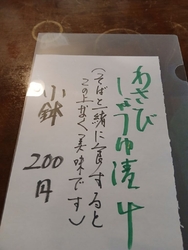 わさび
しょうゆ漬け
(そばと一緒に食すると
この上なく美味です)
小鉢 200円